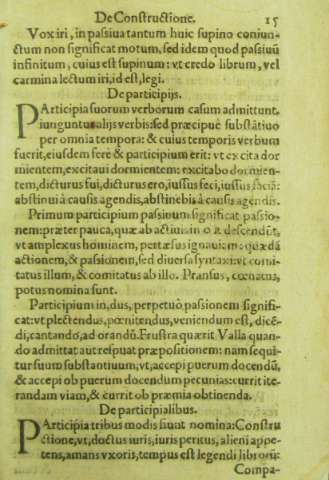 De Constructione. 15
Vox iri, in passiua tantum huic supino coniun-
ctum non significat motum, sed idem quod passiuũ
infinitum, cuius est supinum: vt credo librum, vel
carmina lectum iri, id est, legi.
De participijs.
PArticipia suorum verborum casum admittunt,
iunguntur alijs verbis: sed præcipuè substãtiuo
per omnia tempora: & cuius temporis verbum
fuerit, eiusdem ferè & participium erit: vt excita dor
mientem, excitaui dormientem: excitabo dormien-
tem, dicturus fui, dicturus ero, iussus feci, iussus
abstinui à causis agendis, abstinebis à causis agendis.
Primum participium passiuum significat passio-
nem: præter pauca, quæ ab actiuis in o descendũt,
vt amplexus hominem, pertæsus ignauiem: quædã
actionem, & passionem, sed diuersa syntaxi: vt comi-
tatus illum, & comitatus ab illo. Pransus, cœnatus,
potus nomina sunt.
Participium in, dus, perpetuò passionem signifi-
cat: vt plectendus, pœnitendus, veniendum est, dicẽ-
di, cantando, ad orandũ. Frustra quærit Valla quan-
do admittat aut respuat præpositionem: nam sequi-
tur suum substantiuum, vt, accepi puerum docendũ,
& accepi ob puerum docendum pecunias: currit ite-
randam viam, & currit ob præmia obtinenda.
De participialibus.
PArticipia tribus modis fiunt nomina: Constru
ctione, vt, doctus iuris, iuris peritus, alieni appe-
tens, amans vxoris, tempus est legendi librorũ:
Compa-